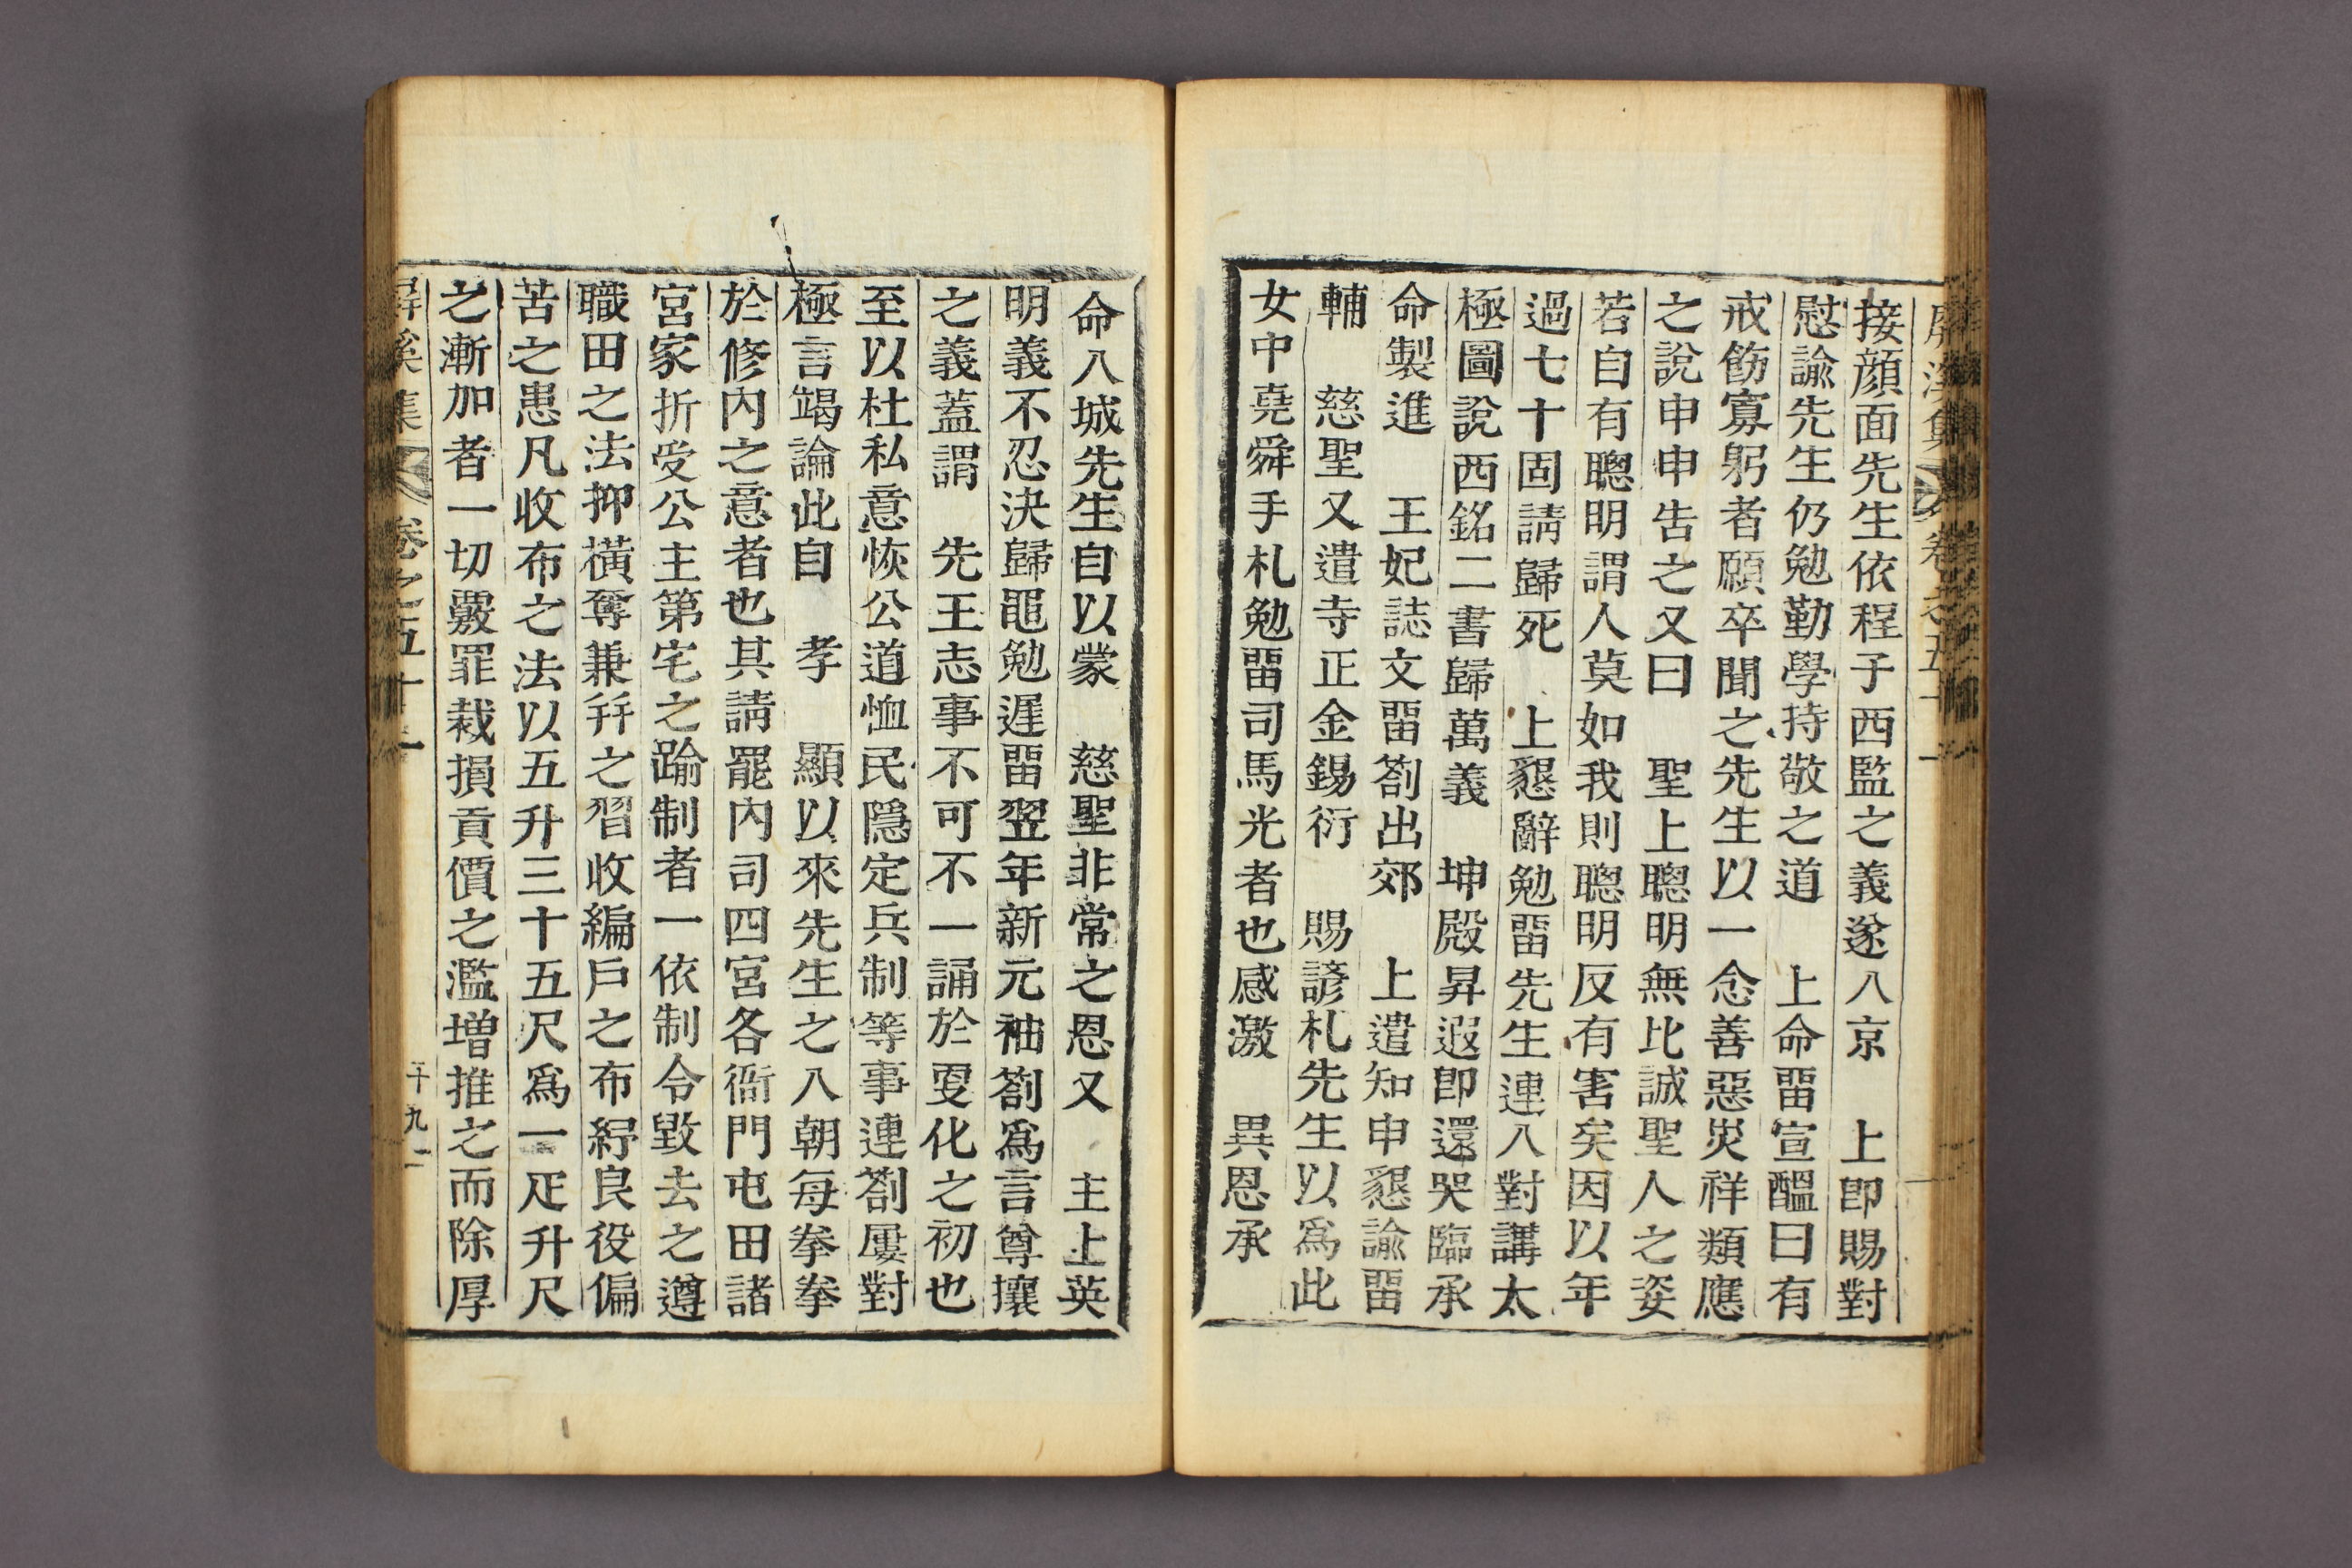 屛溪集 卷之五十一
接顔面先生依程子西監之義遂入京　上卽賜對
慰諭先生仍勉勤學持敬之道　上命畱宣醞曰有
戒飭寡躬者願卒聞之先生以一念善惡災祥類應
之說申申告之又曰　聖上聰明無比誠聖人之姿
若自有聰明謂人莫如我則聰明反有害矣因以年
過七十固請歸死　上懇辭勉畱先生連入對講太
極圖說西銘二書歸萬義　坤殿昇遐卽還哭臨承
命製進　王妃誌文畱劄出郊　上遣知申懇諭畱
輔　慈聖又遣寺正金錫衍　賜諺札先生以爲此
女中堯舜手札勉畱司馬光者也感激　異恩承
命入城先生自以蒙　慈聖非常之恩又　主上英
明義不忍決歸黽勉遲畱翌年新元袖劄爲言尊攘
之義蓋謂　先王志事不可不一誦於更化之初也
至以杜私意恢公道恤民隱定兵制等事連劄屢對
極言竭論此自　孝　顯以來先生之入朝每拳拳
於修內之意者也其請罷內司四宮各衙門屯田諸
宮家折受公主第宅之踰制者一依制令毀去之遵
職田之法抑橫奪兼幷之習收編戶之布紓良役偏
苦之患凡收布之法以五升三十五尺爲一疋升尺
之漸加者一切覈罪裁損貢價之濫增推之而除厚
屛溪集 卷之五十一 十九